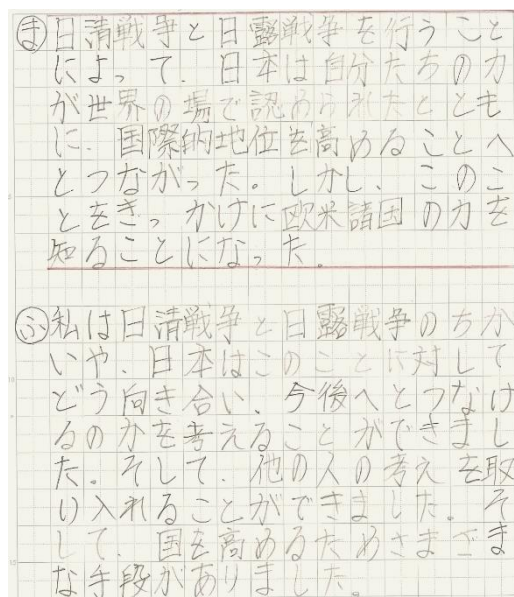 ま 日清戦争と日露戦争を行うこと
によって、日本は自分たちの力
が世界の場で認められたととも
に、国際的地位を高めることへ
とつながった。しかし、このこ
とをきっかけに欧米請国の力を
知ることになった。
ふ 私は日清戦争と日露戦争のちか
いや、日本はこのことに対して
どう向き合い、今後へとつなけ
るのかを考えることができまし
た。そして、他の人の考えを取
り入れることができました。そ
して、国を高めるためさまざま
な手段がありました。